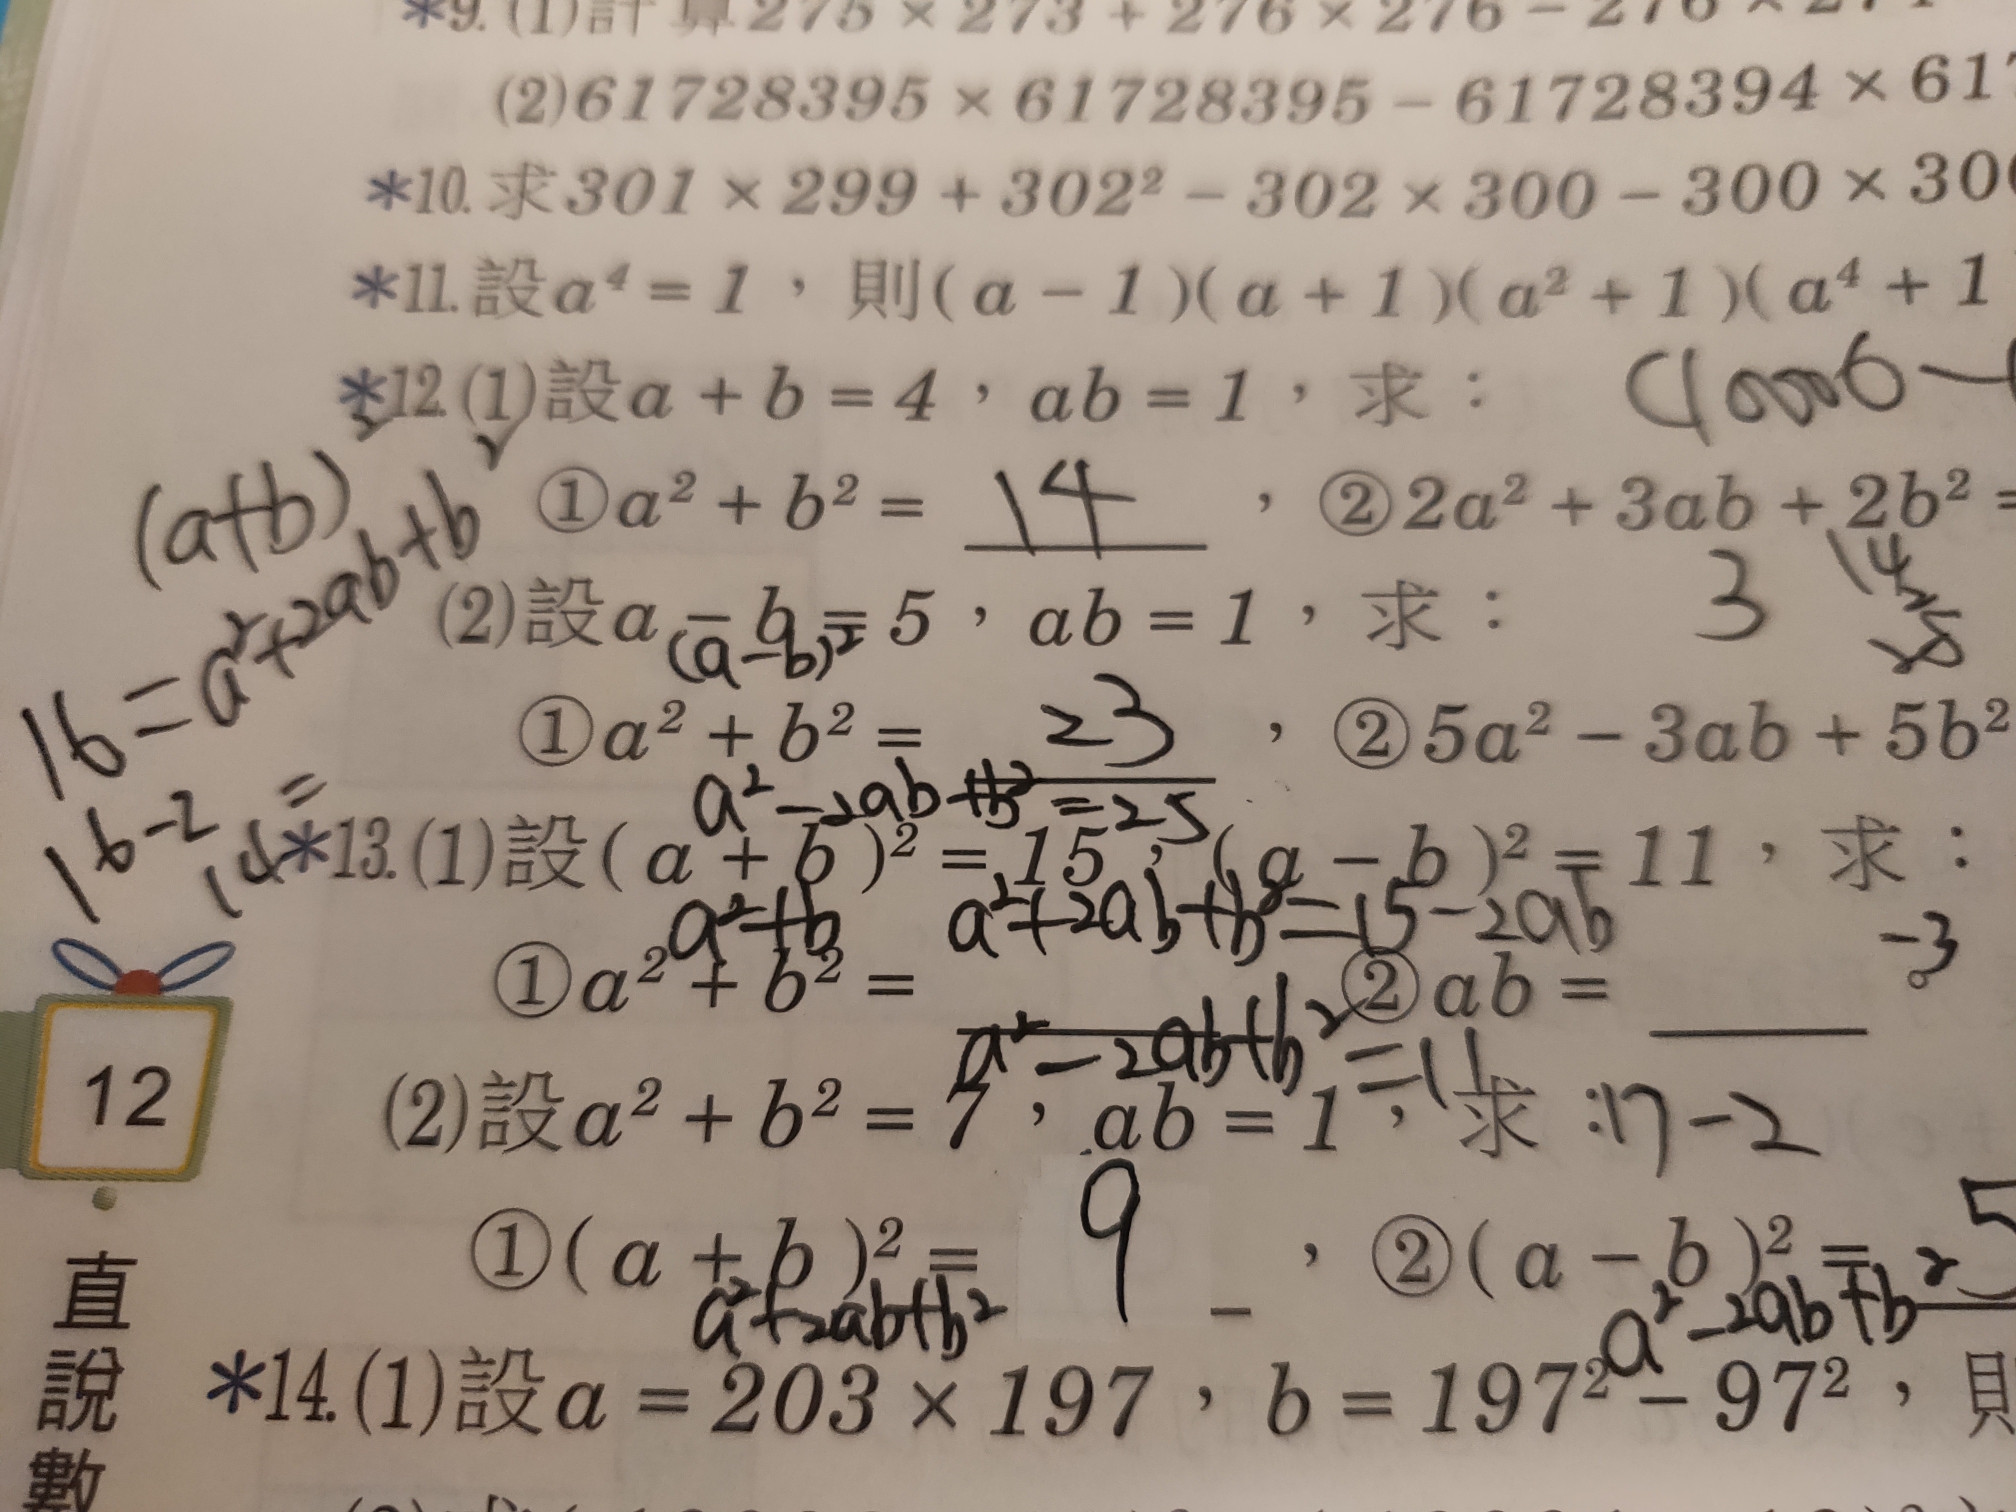 *9. (1)計算275 × 273 + 276 × 276 − 276 × 274
(2)61728395 × 61728395 − 61728394 × 617
*10. 求301 × 299 + 302² − 302 × 300 − 300 × 300
*11. 設a⁴ = 1，則( a − 1 )( a + 1 )( a² + 1 )( a⁴ + 1
*12. (1)設a + b = 4，ab = 1，求：
(a+b)²
①a² + b² = 14，②2a² + 3ab + 2b² =
16 = a²+2ab+b²
3 14
28
(2)設a − b = 5，ab = 1，求：
(a−b)²
①a² + b² = 23，②5a² − 3ab + 5b²
a²−2ab+b²=25
16−2=
14
*13. (1)設( a + b )² = 15，( a − b )² = 11，求：
a²+b a²+2ab+b²=15−2ab
−3
①a² + b² = ②ab =
a²−2ab+b²=11
(2)設a² + b² = 7，ab = 1，求：
17−2
①( a + b )² = 9，②( a − b )² = 5
a²+2ab+b² a²−2ab+b²
*14. (1)設a = 203 × 197，b = 197² − 97²，則
12
直說數